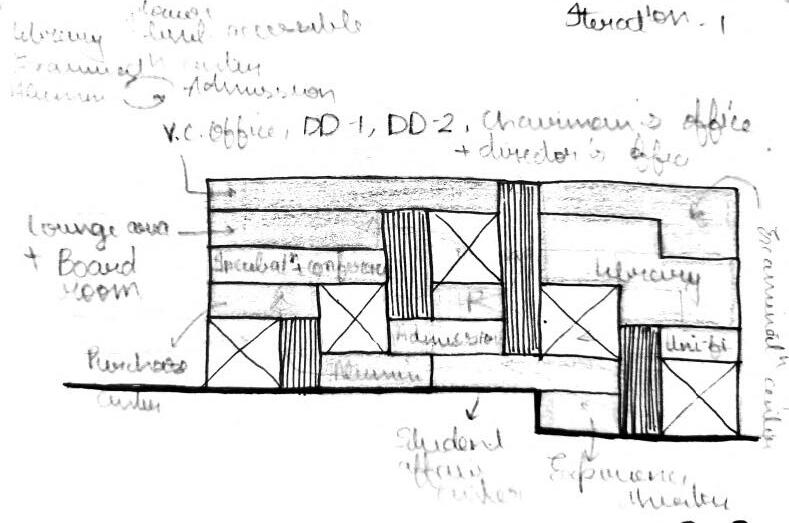 Iteration - 1
Library level accessible
Examinatⁿ center
Alumni Admission
V.C. Office, DD-1, DD-2, Chairman's office
+ director's office
Lounge area
+ Board
room
Incubatⁿ + conference
Library
P
R
Admission
Uni-fi
Purchase
center
Alumini
Examinatⁿ center
Student
affairs
center
Experience
theater